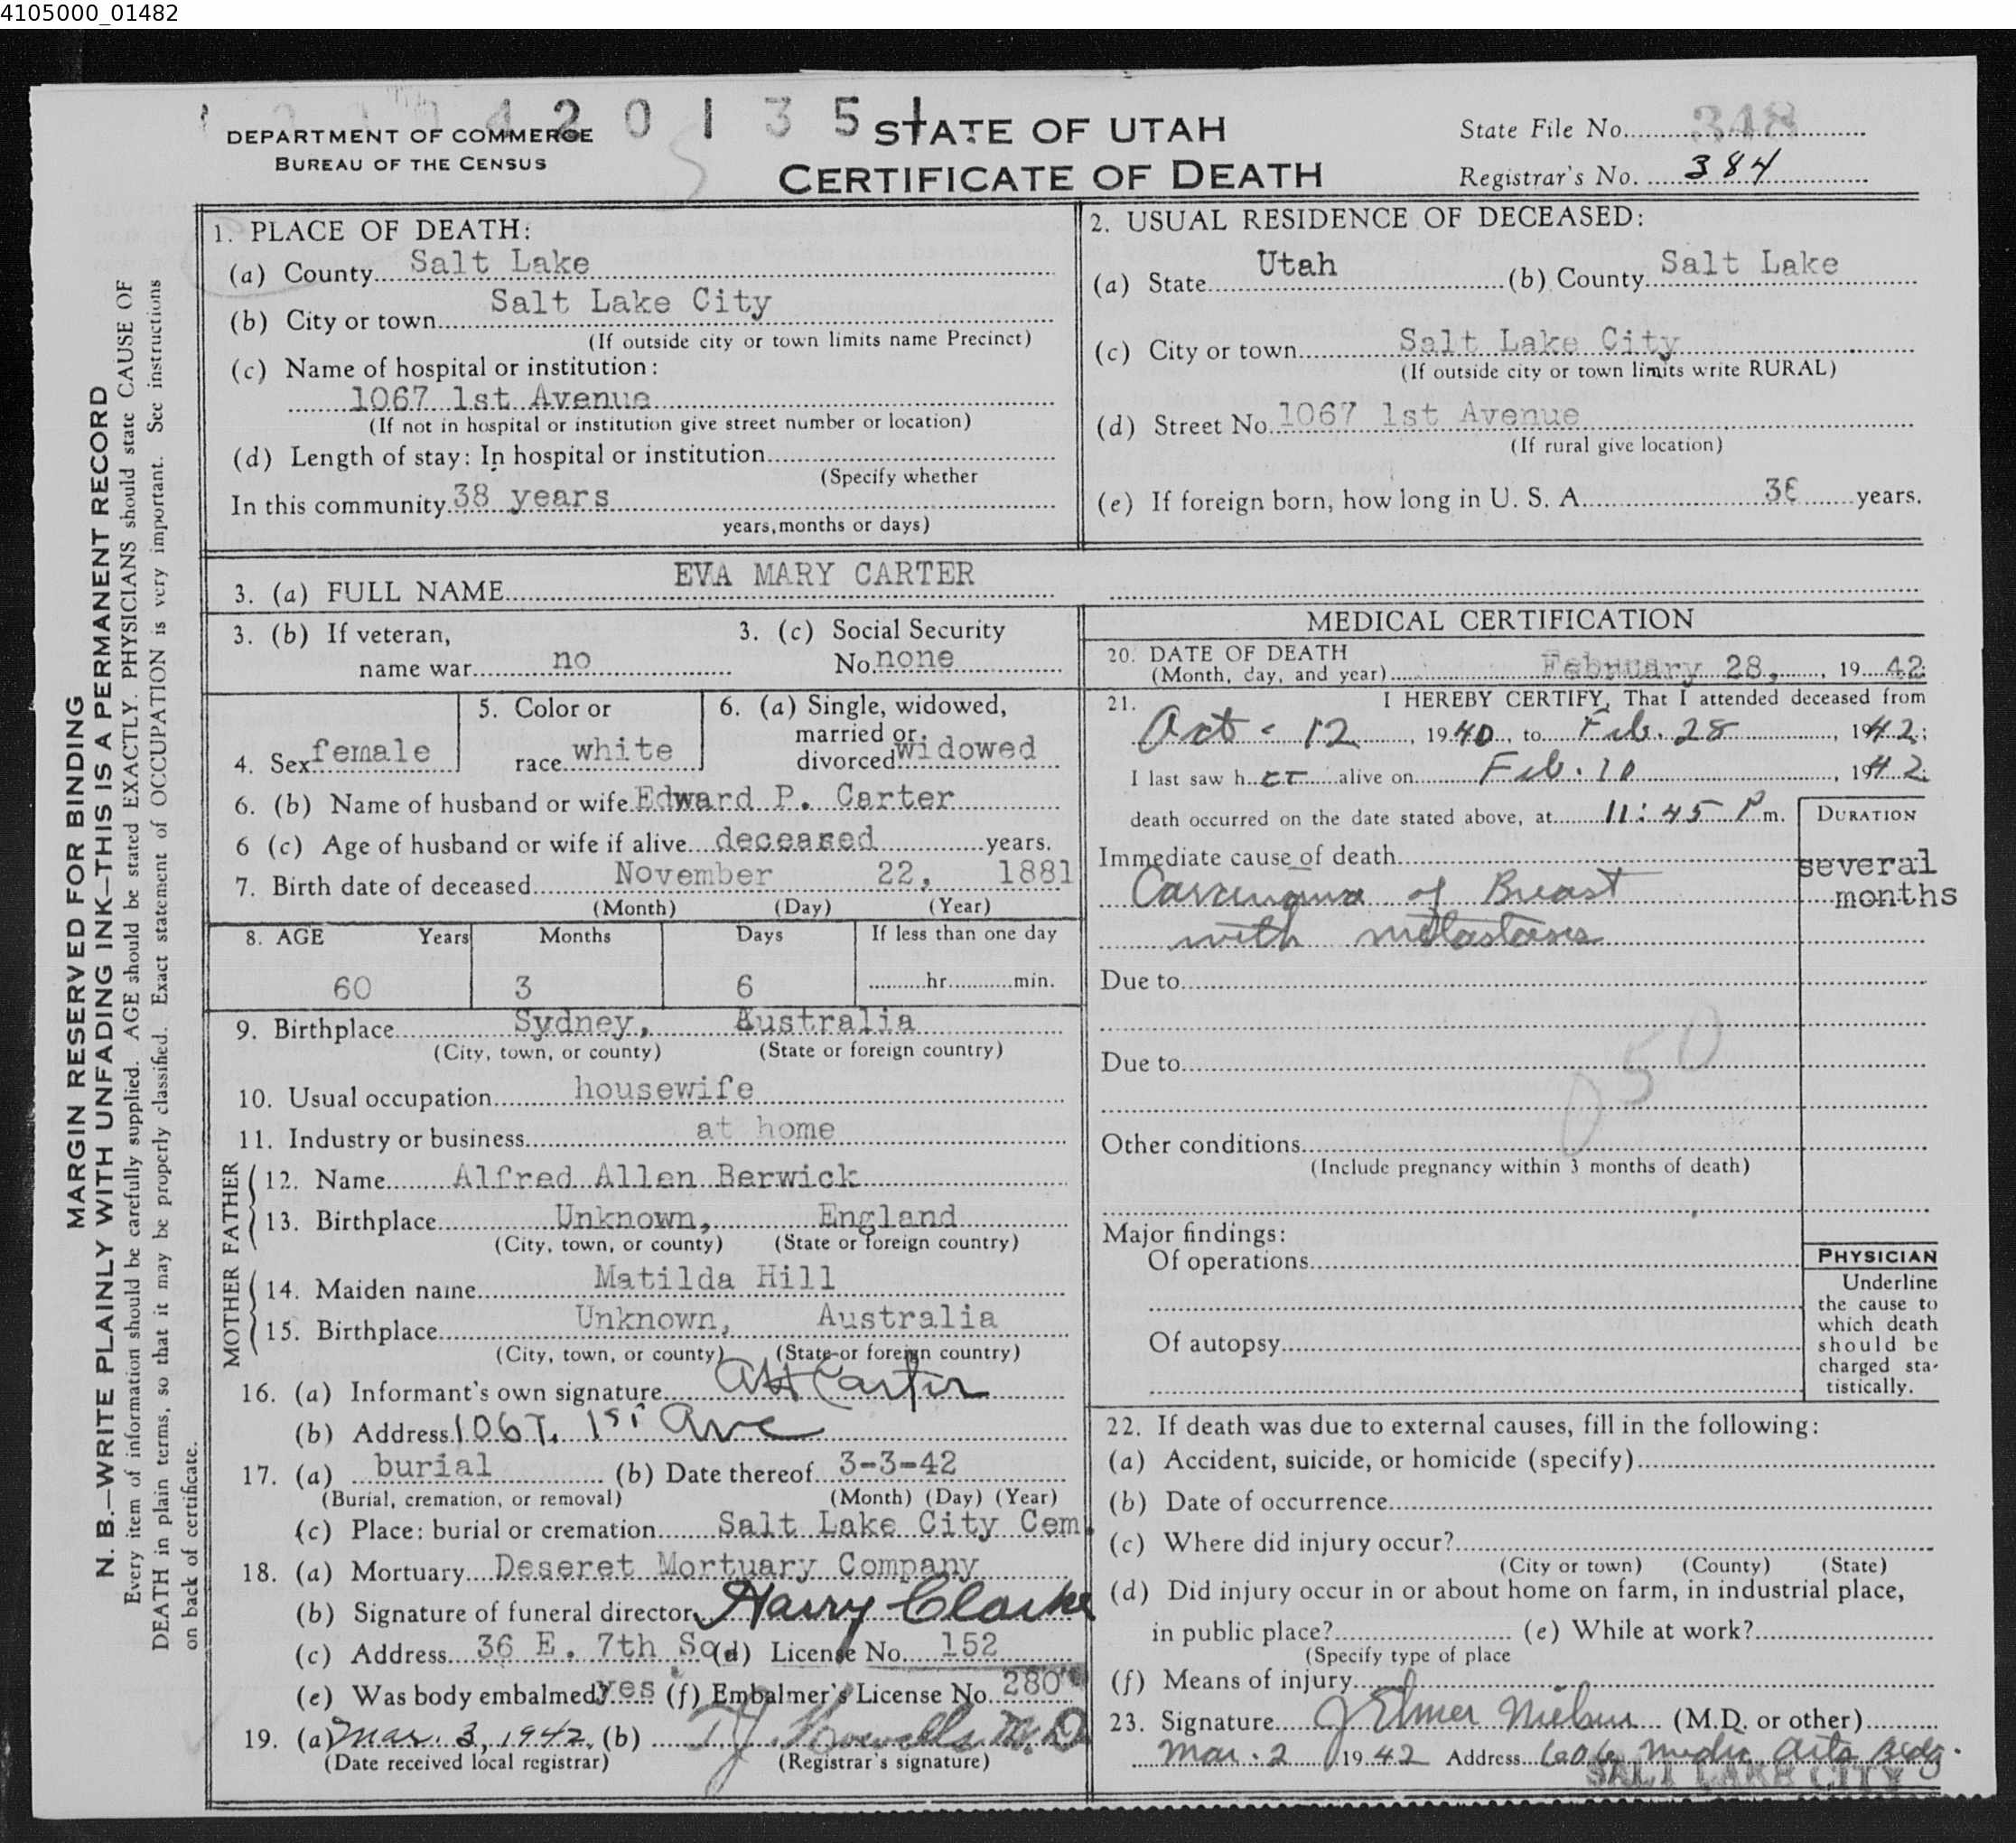 4105000_01482
420135
DEPARTMENT OF COMMERCE
BUREAU OF THE CENSUS
STATE OF UTAH
CERTIFICATE OF DEATH
State File No. 348
Registrar's No. 384
MARGIN RESERVED FOR BINDING
N. B.—WRITE PLAINLY WITH UNFADING INK—THIS IS A PERMANENT RECORD
Every item of information should be carefully supplied. AGE should be stated EXACTLY. PHYSICIANS should state CAUSE OF
DEATH in plain terms, so that it may be properly classified. Exact statement of OCCUPATION is very important. See instructions
on back of certificate.
1. PLACE OF DEATH:
(a) County Salt Lake
(b) City or town Salt Lake City
(If outside city or town limits name Precinct)
(c) Name of hospital or institution:
1067 1st Avenue
(If not in hospital or institution give street number or location)
(d) Length of stay: In hospital or institution
(Specify whether
In this community 38 years
years, months or days)
2. USUAL RESIDENCE OF DECEASED:
(a) State Utah (b) County Salt Lake
(c) City or town Salt Lake City
(If outside city or town limits write RURAL)
(d) Street No. 1067 1st Avenue
(If rural give location)
(e) If foreign born, how long in U. S. A. years.
3. (a) FULL NAME EVA MARY CARTER
3. (b) If veteran,
name war no
3. (c) Social Security
No. none
4. Sex female
5. Color or
race white
6. (a) Single, widowed,
married or
divorced widowed
6. (b) Name of husband or wife Edward P. Carter
6 (c) Age of husband or wife if alive deceased years.
7. Birth date of deceased November 22, 1881
(Month) (Day) (Year)
8. AGE Years Months Days If less than one day
60 3 6 hr. min.
9. Birthplace Sydney, Australia
(City, town, or county) (State or foreign country)
10. Usual occupation housewife
11. Industry or business at home
FATHER
12. Name Alfred Allen Berwick
13. Birthplace Unknown, England
(City, town, or county) (State or foreign country)
MOTHER
14. Maiden name Matilda Hill
15. Birthplace Unknown, Australia
(City, town, or county) (State or foreign country)
16. (a) Informant's own signature Carter
(b) Address 1067 1st Ave
17. (a) burial (b) Date thereof 3-3-42
(Burial, cremation, or removal) (Month) (Day) (Year)
(c) Place: burial or cremation Salt Lake City Cem.
18. (a) Mortuary Deseret Mortuary Company
(b) Signature of funeral director Harry Clarke
(c) Address 36 E. 7th So. (d) License No. 152
(e) Was body embalmed? yes (f) Embalmer's License No. 280
19. (a) Mar. 3, 1942 (b) M.D.
(Date received local registrar) (Registrar's signature)
MEDICAL CERTIFICATION
20. DATE OF DEATH
(Month, day, and year) February 28, 1942
21. I HEREBY CERTIFY, That I attended deceased from
Oct - 12, 1940, to Feb. 28, 1942;
I last saw her alive on Feb. 10, 1942
death occurred on the date stated above, at 11:45 P m.
DURATION
Immediate cause of death
Carcinoma of Breast
with metastasis
several
months
Due to
Due to
050
Other conditions
(Include pregnancy within 3 months of death)
Major findings:
Of operations
Of autopsy
PHYSICIAN
Underline
the cause to
which death
should be
charged sta-
tistically.
22. If death was due to external causes, fill in the following:
(a) Accident, suicide, or homicide (specify)
(b) Date of occurrence
(c) Where did injury occur?
(City or town) (County) (State)
(d) Did injury occur in or about home on farm, in industrial place,
in public place? (e) While at work?
(Specify type of place
(f) Means of injury
23. Signature J Elmer Nielsen (M.D. or other)
Mar. 2 1942 Address Medic Arts Bldg.
SALT LAKE CITY